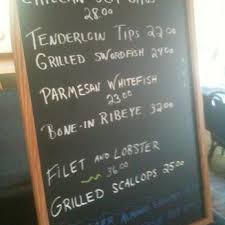 28.00
TENDERLOIN TIPS 22.00
GRILLED SWORDFISH 24.00
PARMESAN WHITEFISH
23.00
BONE-IN RIBEYE 32.00
FILET AND LOBSTER
36.00
GRILLED SCALLOPS 25.00